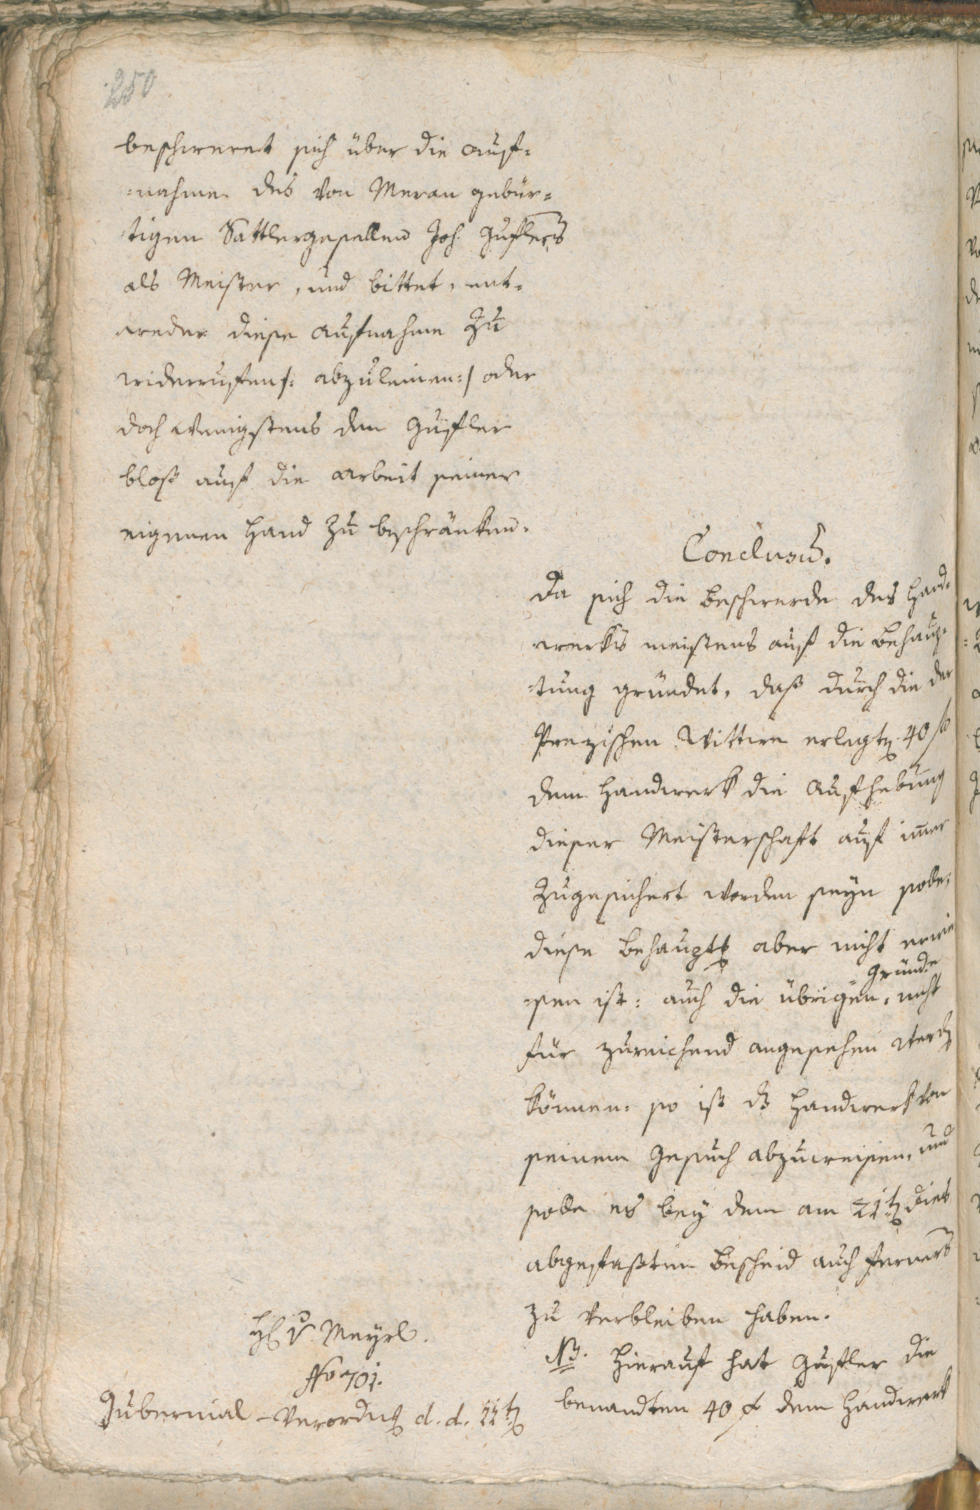 250
beschweret sich über die auf-
-nahme des von Meran gebür-
tigen Sattlergesellens Joh. Gufler's
als Meister, und bittet, ent-
weder diese aufnahme zu
widerruffen /: abzuleinen :/ oder
doch wenigstens den Gufler
bloß auf die arbeit seiner
eigenen Hand zu beschränken.
Conclusũ.
Da sich die beschwerde des Hand-
werks meistens auf die behaup-
-tung gründet, daß durch die der
Wittwe erlegte 40 f
dem Handwerk die aufhebung
dieser Meisterschaft auf im̄er
zugesichert worden seyn solle,
diese behauptg aber nicht erwie
-sen ist: auch die übrigen, Gründe nicht
für zureichend angesehen werdn
können: so ist dz Handwerk von
seinem Gesuch abzuweisen, und
solle es bey dem am 21tn dies
abgefaßten bescheid auch ferners
zu verbleiben haben.
NB. Hierauf hat Gufler die
benandten 40 f dem Handwerk
H v. Meyrl.
No 701.
Gubernial-Verordng d. d. 11tn